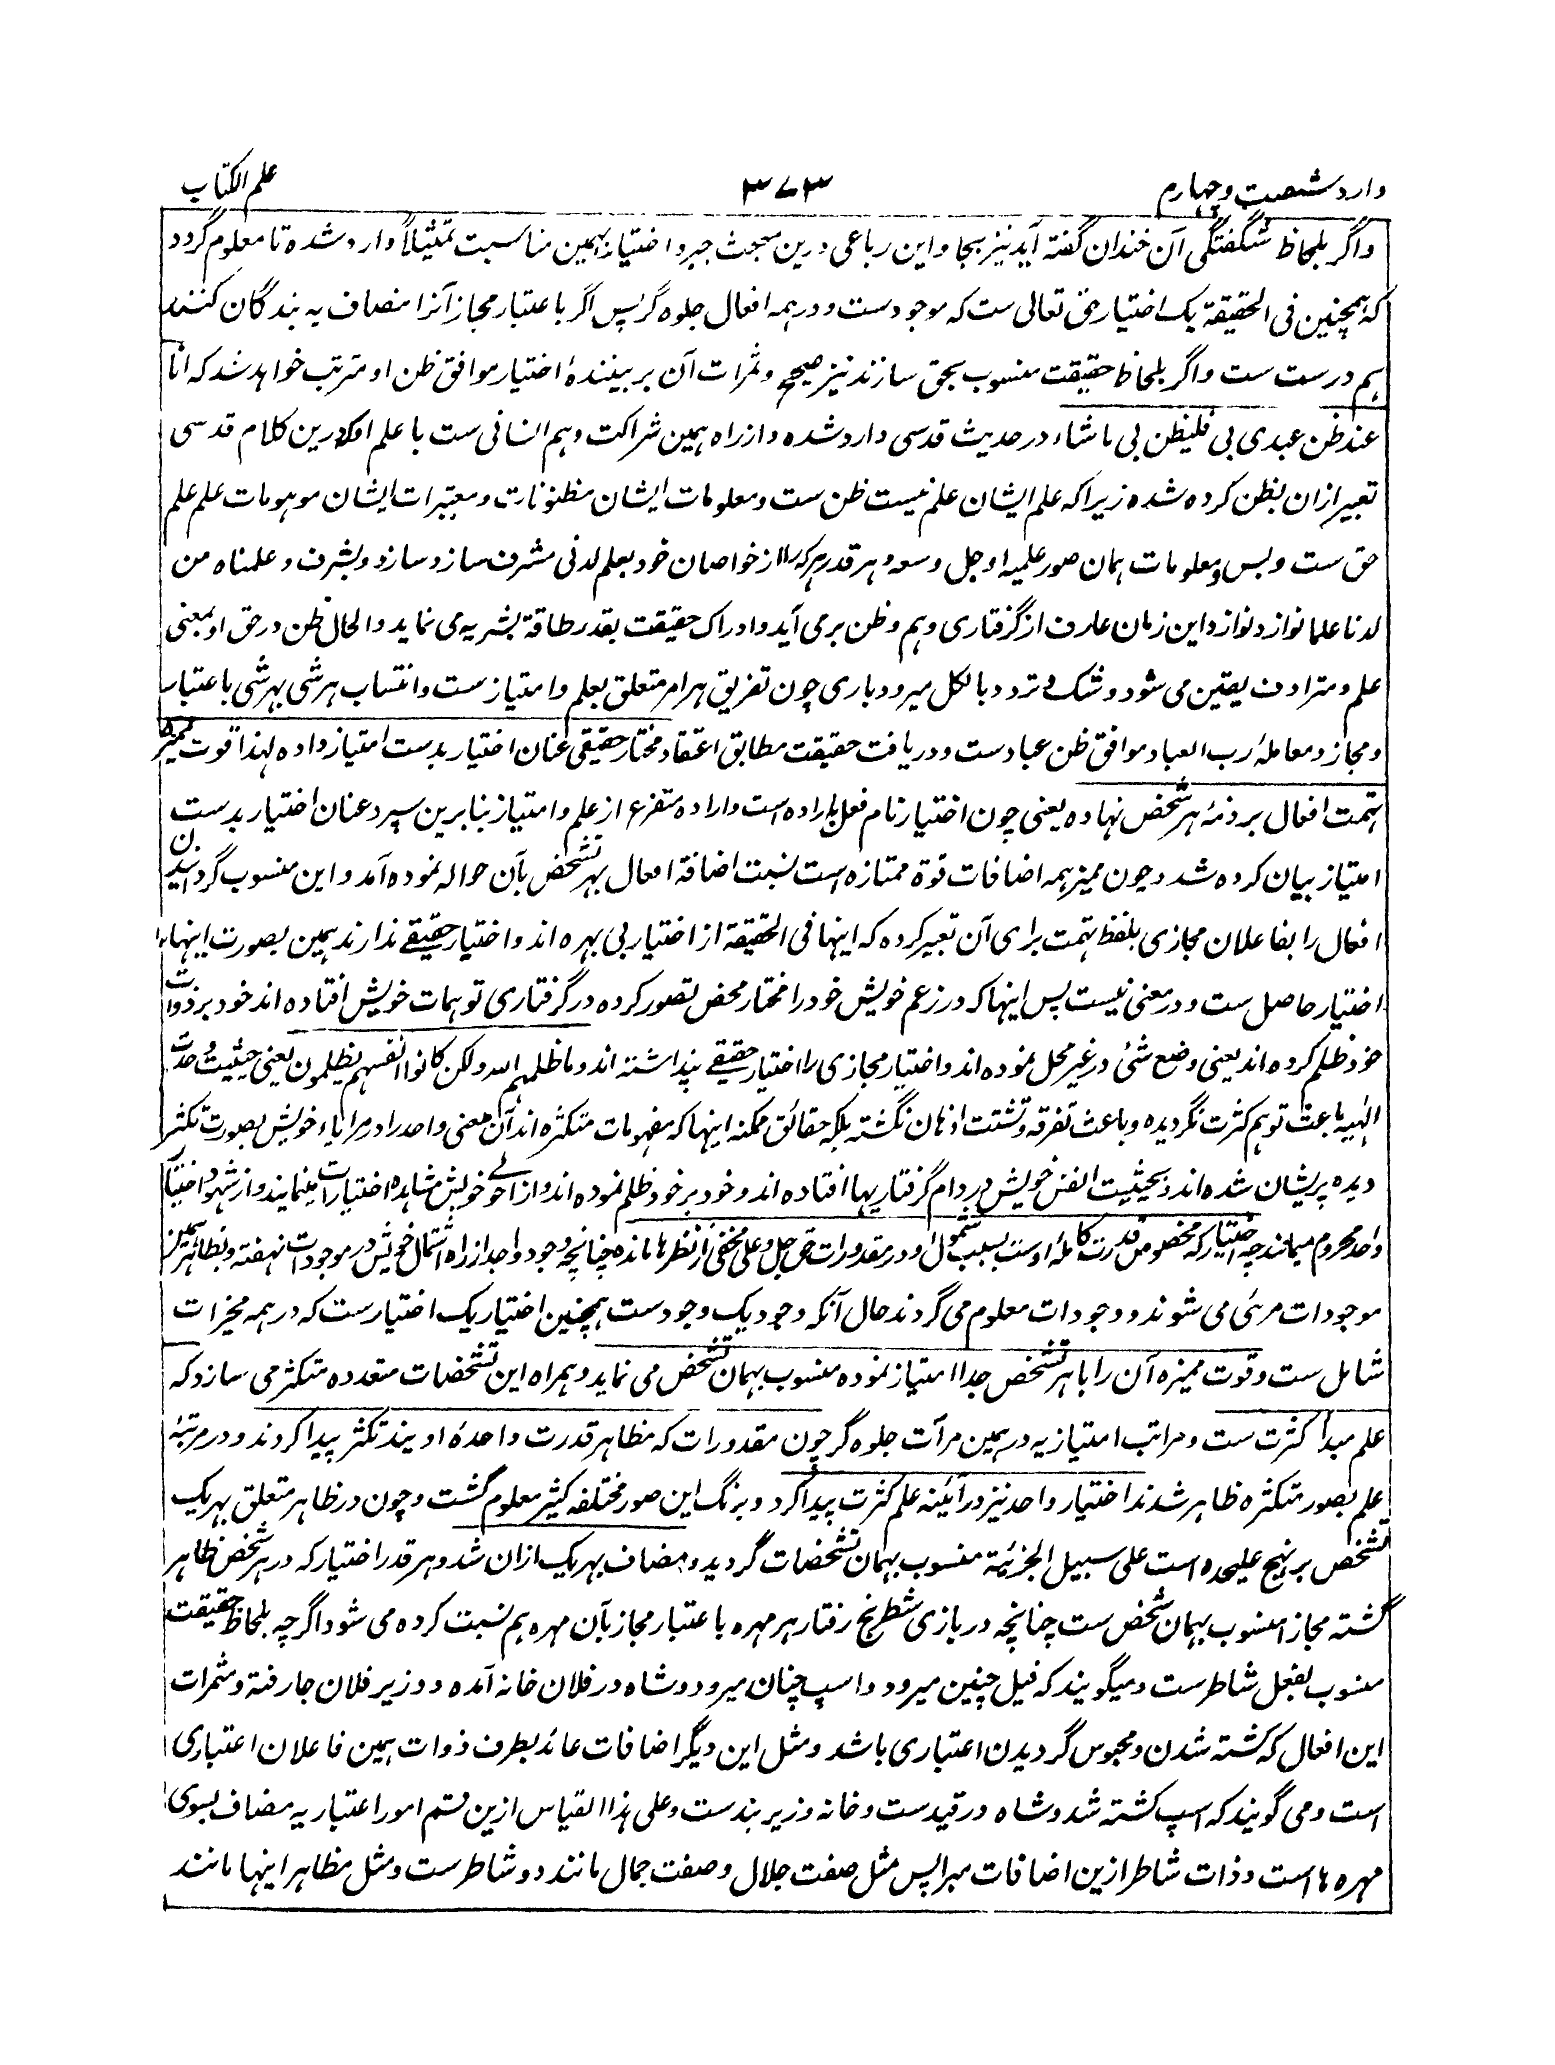 وارد شصت و چهارم
۳۷۳
علم الکتاب
واگر بلحاظ شگفتگی آن خندان گفته آید نیز بجا و این رباعی درین مبحث جبر و اختیار بهمین مناسبت تمثیلاً وارد شده تا معلوم گردد
که همچنین فی الحقیقة یک اختیار حق تعالی ست که موجود ست و در همه افعال جلوه گر پس اگر باعتبار مجاز آنرا مضاف به بندگان کنند
هم درست ست واگر بلحاظ حقیقت منسوب بحق سازند نیز صحیح و ثمرات آن بر بینندهٔ اختیار موافق ظن او مترتب خواهد شد که انا
عند ظن عبدی بی فلیظن بی ما شاء در حدیث قدسی وارد شده و از راه همین شراکت وهم انسانی ست با علم او که درین کلام قدسی
تعبیر ازان بظن کرده شده زیرا که علم ایشان علم نیست ظن ست و معلومات ایشان مظنونات و معتبرات ایشان موهومات علم علم
حق ست و بس و معلومات همان صور علمیه او جل وسعه و هر قدر هر که را از خواصان خود بعلم لدنی مشرف سازد سازد و بشرف و علمناه من
لدنا علما نوازد نوازد این زمان عارف از گرفتاری وهم و ظن بر می آید و ادراک حقیقت بقدر طاقة بشریه می نماید و الحال ظن در حق او بمعنی
علم و مترادف یقین می شود و شک و تردد بالکل میرود باری چون تفریق هر امر متعلق بعلم و امتیاز ست و انتساب هر شی بهر شی باعتبار
و مجاز و معاملهٔ رب العباد موافق ظن عباد ست و دریافت حقیقت مطابق اعتقاد مختار حقیقی عنان اختیار بدست امتیاز داده لهذا قوت ممیزه
تهمت افعال بر ذمهٔ هر شخص نهاده یعنی چون اختیار نام فعل بارادهاست و اراده متفرع از علم و امتیاز بنابرین سپرد عنان اختیار بدست
امتیاز بیان کرده شد و چون ممیز همه اضافات قوة ممتازه است نسبت اضافۀ افعال بهر تشخص بآن حواله نموده آمد و این منسوب گردانیدن
افعال را بفاعلان مجازی بلفظ تهمت برای آن تعبیر کرده که اینها فی الحقیقة از اختیار بی بهره اند و اختیار حقیقے ندارند همین بصورت اینها را
اختیار حاصل ست و در معنی نیست پس اینها که در زعم خویش خود را مختار محض تصور کرده در گرفتاری توهمات خویش افتاده اند خود بر ذوات
خود ظلم کرده اند یعنی وضع شئ در غیر محل نموده اند و اختیار مجازی را اختیار حقیقے پنداشته اند و ما ظلمهم الله ولکن کانوا انفسهم یظلمون یعنی حیثیت وحدت
الهٰیه باعث توهم کثرت نگردیده و باعث تفرقه و تشتت اذهان نگشته بلکه حقائق ممکنه اینها که مفهومات متکثره اند آن معنی واحد را در مرایاء خویش بصورت تکثر
دیده پریشان شده اند و بحیثیت انفس خویش در دام گرفتاریها افتاده اند و خود بر خود ظلم نموده اند و از خویش مشاهده اختیارات مینمایند و از شهود اختیار
واحد محروم میمانند چه اختیار که مخصوص قدرت کاملهٔ اوست بسبب شمول او در مقدورات حق جل و علی مخفی از نظرها مانده چنانچه وجود واحد از راه اشتمال خویش در موجودات نهفته و بظاهر همین
موجودات مرئی می شوند و وجودات معلوم می گردند حال آنکه وجود یک وجود ست همچنین اختیار یک اختیار ست که در همه مخیرات
شامل ست و قوت ممیزه آن را با هر تشخص جدا امتیاز نموده منسوب بهمان تشخص می نماید و همراه این تشخصات متعدده متکثر می سازد که
علم مبدأ کثرت ست و مراتب امتیازیه در همین مرآت جلوه گر چون مقدورات که مظاهر قدرت واحدهٔ اویند تکثر پیدا کردند و در مرتبهٔ
علم بصور متکثره ظاهر شدند اختیار واحد نیز در آئینه علم کثرت پیدا کرد و برنگ این صور مختلفه کثیر معلوم گشت و چون در ظاهر متعلق بهر یک
تشخص بر نهج علیحده است علی سبیل الجزئیة منسوب بهمان تشخصات گردید و مضاف بهر یک ازان شد و هر قدر اختیار که در هر شخص ظاهر
گشته مجازا منسوب بهمان شخص ست چنانچه در بازی شطرنج رفتار هر مهره باعتبار مجاز بآن مهره هم نسبت کرده می شود اگرچه بلحاظ حقیقت
منسوب بفعل شاطر ست و میگویند که فیل چنین میرود و اسپ چنان میرود و شاه در فلان خانه آمده و وزیر فلان جا رفته و ثمرات
این افعال که کشته شدن و محبوس گردیدن اعتباری باشد و مثل این دیگر اضافات عائد بطرف ذوات همین فاعلان اعتباری
است و می گویند که اسپ کشته شد و شاه در قید ست و خانه وزیر بند ست و علی هذا القیاس ازین قسم امور اعتباریه مضاف بسوی
مهره هااست و ذات شاطر ازین اضافات مبرا پس مثل صفت جلال و صفت جمال مانند دو شاطر ست و مثل مظاهر اینها مانند